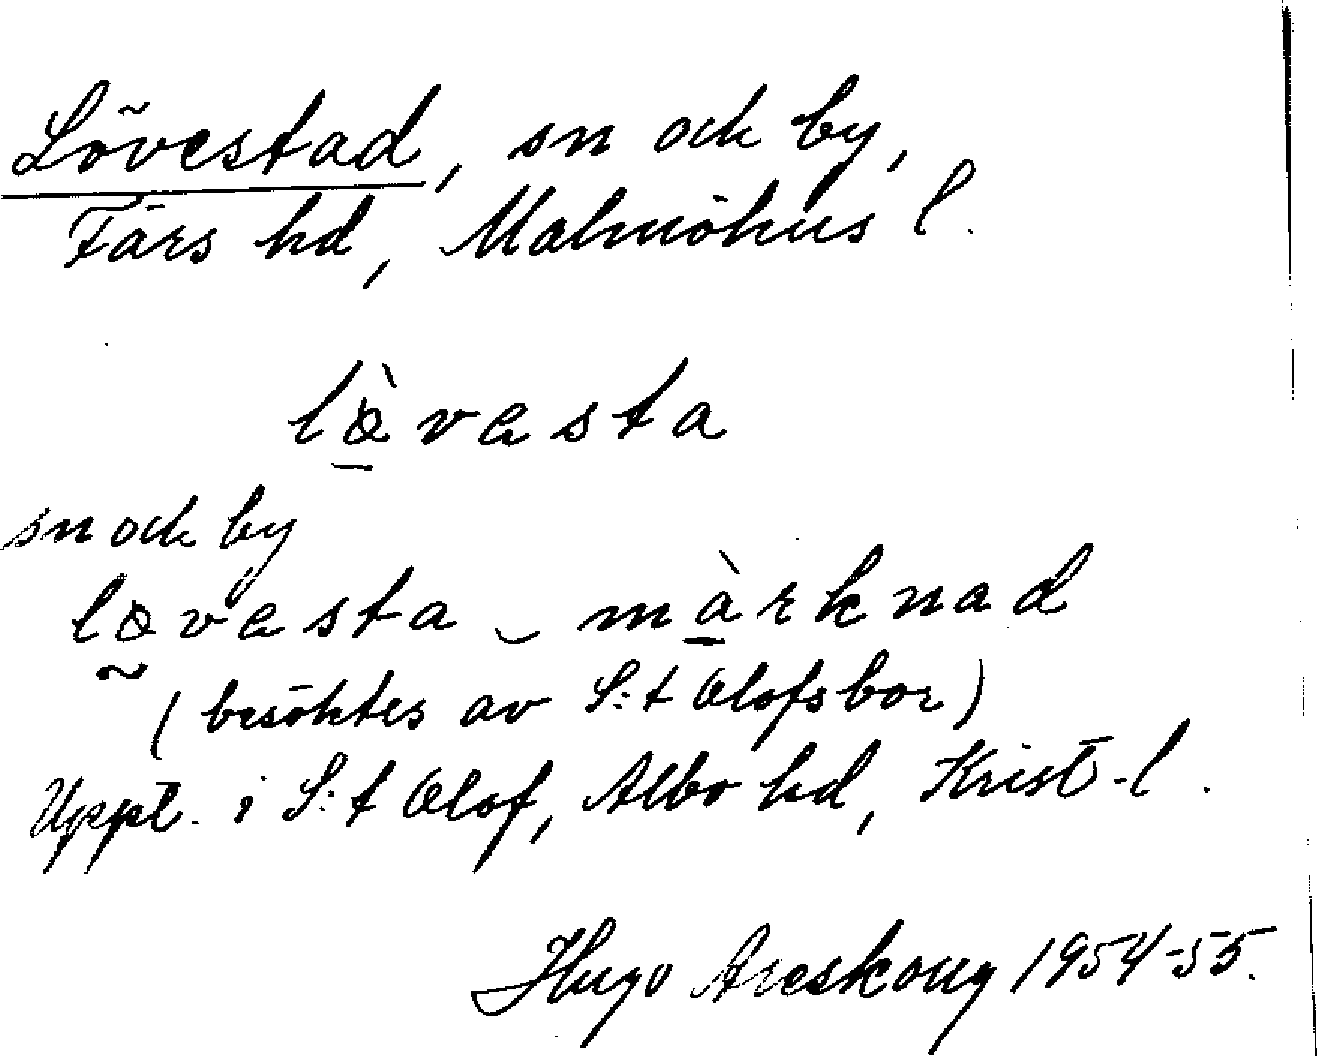 Lövestad, sn och by,
Färs hd, Malmöhus l.
lø̱̀vasta
sn och by
lø̰vasta ‿ mà̱rknad
(besöktes av S:t Olofsbor)
Uppt. i S:t Olof, Albo hd, Krist-l.
Hugo Areskoug 1954-55.